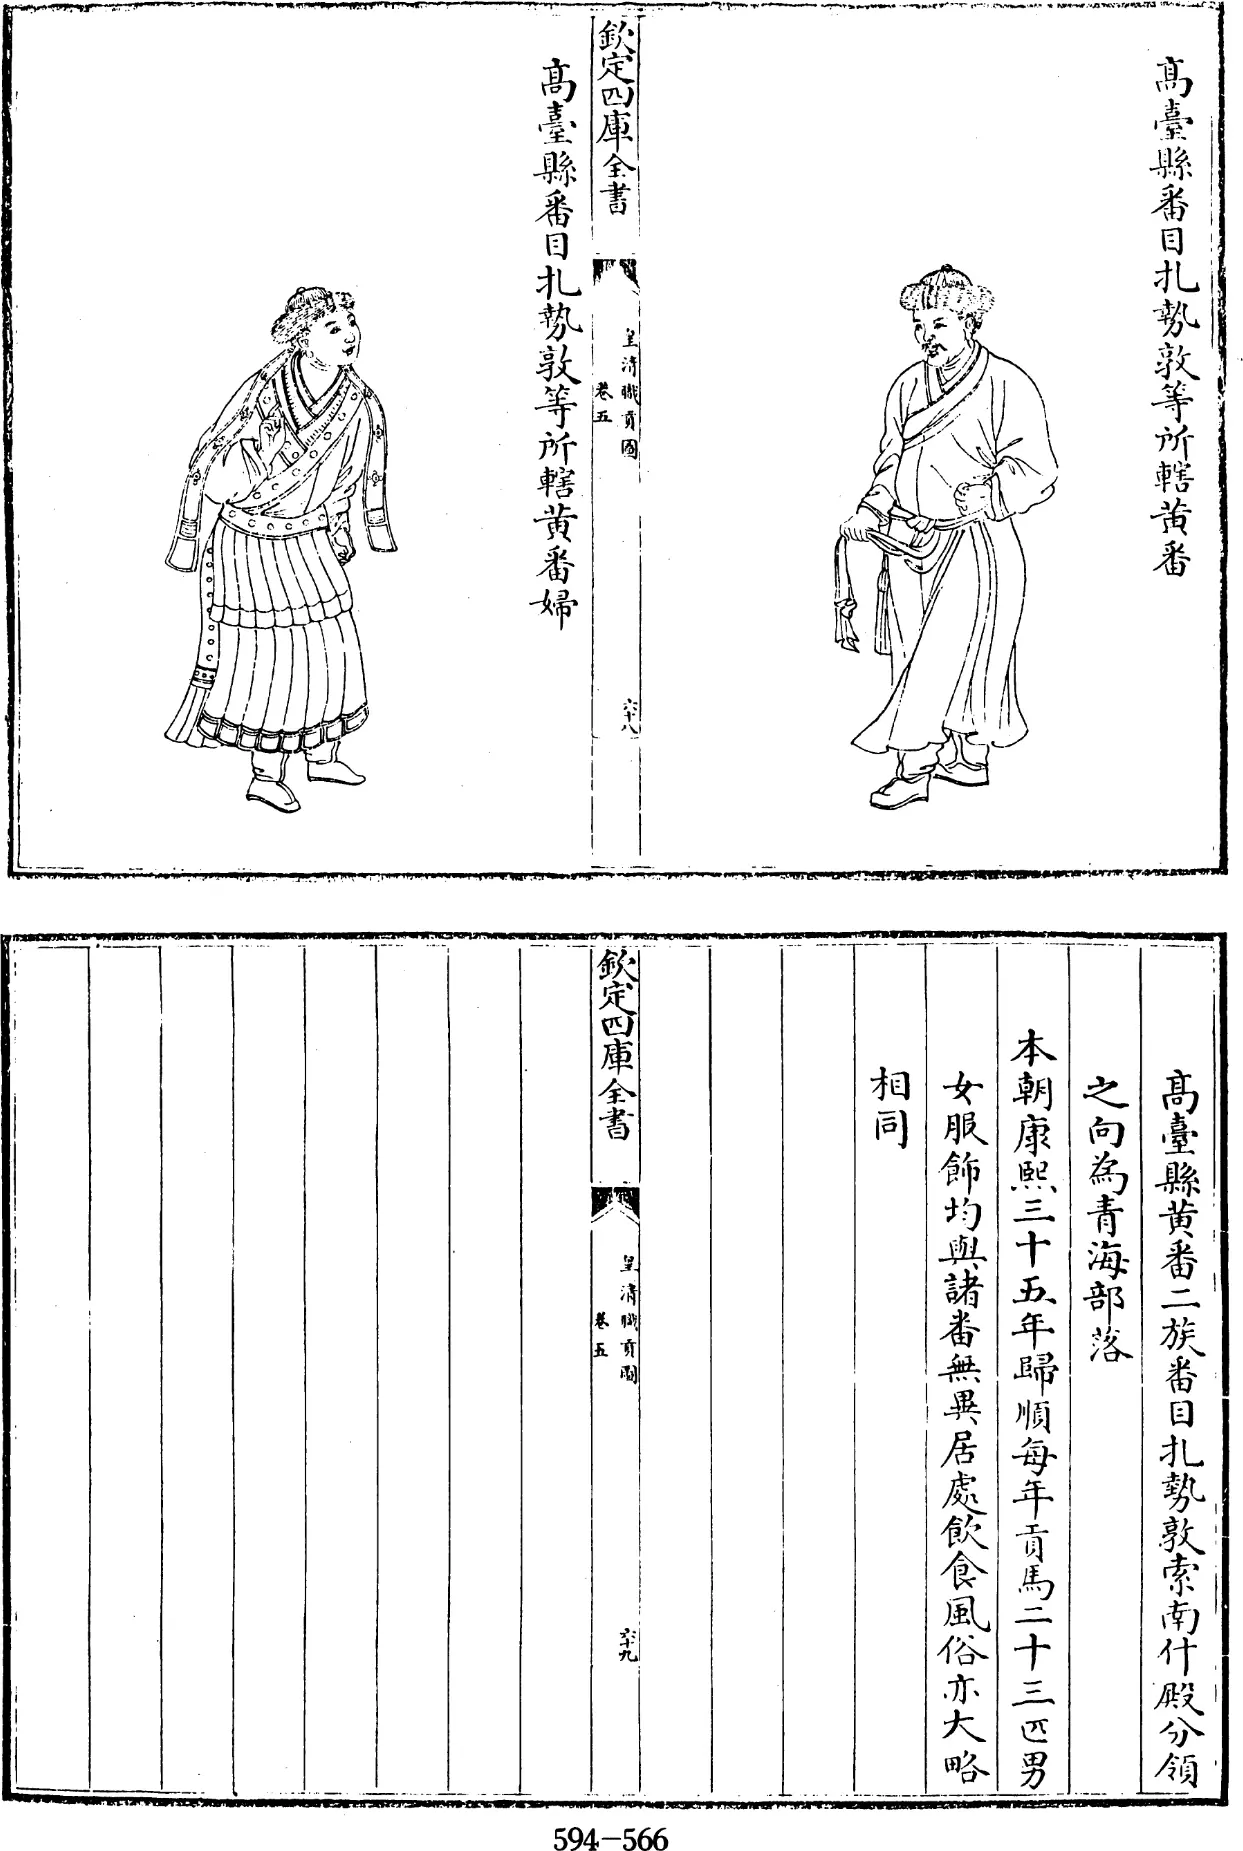 高臺縣番目扎勢敦等所轄黄番
欽定四庫全書
皇清職貢圖
卷五
六十八
高臺縣番目扎勢敦等所轄黄番婦
高臺縣黄番二族番目扎勢敦索南什殿分領
之向為青海部落
本朝康熙三十五年歸順每年貢馬二十三匹男
女服飾均與諸番無異居處飲食風俗亦大略
相同
欽定四庫全書
皇清職貢圖
卷五
六十九
594-566